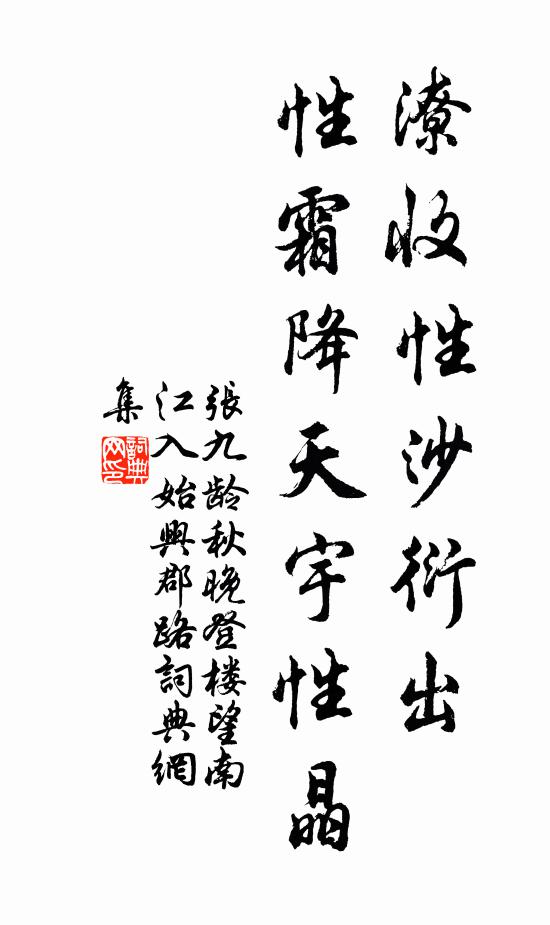 潦收性沙衍出
性霜降天宇性晶
張九齡秋晚登楼望南
江入始興郡路詞典網
集
詞典网印